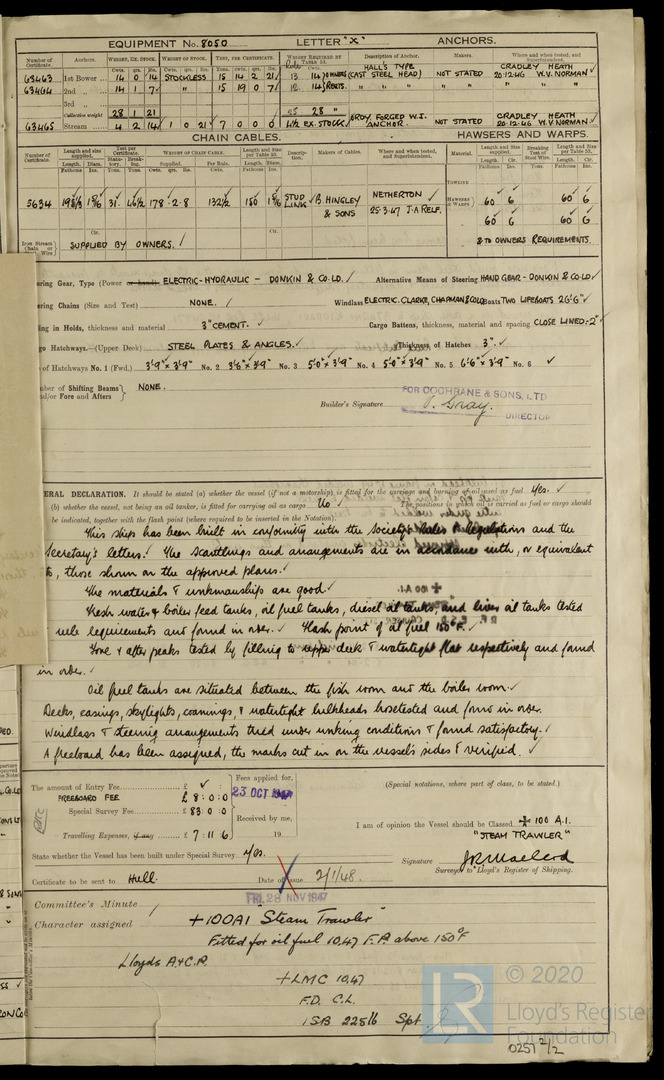 EQUIPMENT No. 8050 LETTER "X" ANCHORS.
Number of Certificate. Anchors. WEIGHT, EX. STOCK. WEIGHT OF STOCK. TEST, PER CERTIFICATE. WEIGHT REQUIRED BY TABLE 53. Description of Anchor. Makers. Where and when tested, and Superintendent.
63463 1st Bower 14 0 14 STOCKLESS 15 14 2 21 HALL'S TYPE (CAST STEEL HEAD) NOT STATED CRADLEY HEATH 20.12.46 W.V. NORMAN
63464 2nd " 14 1 7 " 15 19 0 7 " " " " "
3rd "
Collective weight 28 1 21 28 "
63465 Stream 4 2 14 1 0 21 7 0 0 0 4½ EX. STOCK ORDY. FORGED W.I. ANCHOR. NOT STATED CRADLEY HEATH 20.12.46 W.V. NORMAN
CHAIN CABLES. HAWSERS AND WARPS.
Number of Certificate. Length and size supplied. Test per Certificate. WEIGHT OF CHAIN CABLE. Length and size per Table 53. Description. Makers of Cables. Where and when tested, and Superintendent. Material. Length and size supplied. Breaking Test of Steel Wire. Length and size per Table 53.
5634 46½ 178.2.8 132½ 180 STUD LINK B. HINGLEY & SONS NETHERTON 25.3.47 J.A. RELF. HAWSERS & WARPS 60 6 60 6
60 6 60 6
Iron Stream Chain or Wire SUPPLIED BY OWNERS. & TO OWNERS REQUIREMENTS.
ering Gear, Type (Power or hand) ELECTRIC-HYDRAULIC – DONKIN & CO. LD. Alternative Means of Steering HAND GEAR – DONKIN & CO LD
ering Chains (Size and Test) NONE. Windlass ELECTRIC. CLARKE, CHAPMAN & CO LD Boats TWO LIFEBOATS 26'6"
ing in Holds, thickness and material 3" CEMENT. Cargo Battens, thickness, material and spacing CLOSE LINED:-2"
go Hatchways.—(Upper Deck) STEEL PLATES & ANGLES. Thickness of Hatches 3".
of Hatchways No. 1 (Fwd.) 3'9" x 3'9" No. 2 3'6" x 3'9" No. 3 5'0" x 3'9" No. 4 5'0" x 3'9" No. 5 6'6" x 3'9" No. 6
mber of Shifting Beams and/or Fore and Afters NONE.
FOR COCHRANE & SONS, LTD
Builder's Signature J. Gray.
DIRECTOR
ERAL DECLARATION. It should be stated (a) whether the vessel (if not a motorship) is fitted for the carriage and burning of oil used as fuel Yes.
(b) whether the vessel, not being an oil tanker, is fitted for carrying oil as cargo No The positions in which oil is carried as fuel or cargo should
be indicated, together with the flash point (where required to be inserted in the Notation):
This ship has been built in conformity with the Society's Rules & Regulations and the
Secretary's letters. The scantlings and arrangements are in accordance with, or equivalent
to, those shown on the approved plans.
The materials & workmanship are good.
Fresh water & boiler feed tanks, oil fuel tanks, diesel oil tanks, and liver oil tanks tested
rule requirements and found in order. Flash point of oil fuel 150°F.
Fore & after peaks tested by filling to upper deck & watertight flat respectively and found
in order.
Oil fuel tanks are situated between the fish room and the boiler room.
Decks, casings, skylights, coamings, & watertight bulkheads hosetested and found in order.
Windlass & steering arrangements tried under working conditions & found satisfactory.
A freeboard has been assigned, the marks cut in on the vessel's sides & verified.
The amount of Entry Fee £ Fees applied for, (Special notations, where part of class, to be stated.)
FREEBOARD FEE £ 8:0:0 23 OCT 1947
Special Survey Fee £ 83:0:0 Received by me, I am of opinion the Vessel should be Classed ✠ 100 A.I.
"STEAM TRAWLER"
Travelling Expenses, if any £ 7:11:6 19
State whether the Vessel has been built under Special Survey Yes. Signature
Surveyor to Lloyd's Register of Shipping.
Certificate to be sent to Hull. Date of issue 2/1/48.
FRI. 28 NOV 1947
Committee's Minute
Character assigned +100A1 "Steam Trawler"
Fitted for oil fuel 10.47 F.P. above 150°F
Lloyds A & C.P.
+LMC 10.47
F.D. C.L.
1SB 225 lb Spt
© 2020
Lloyd's Register
Foundation
0257 2/2